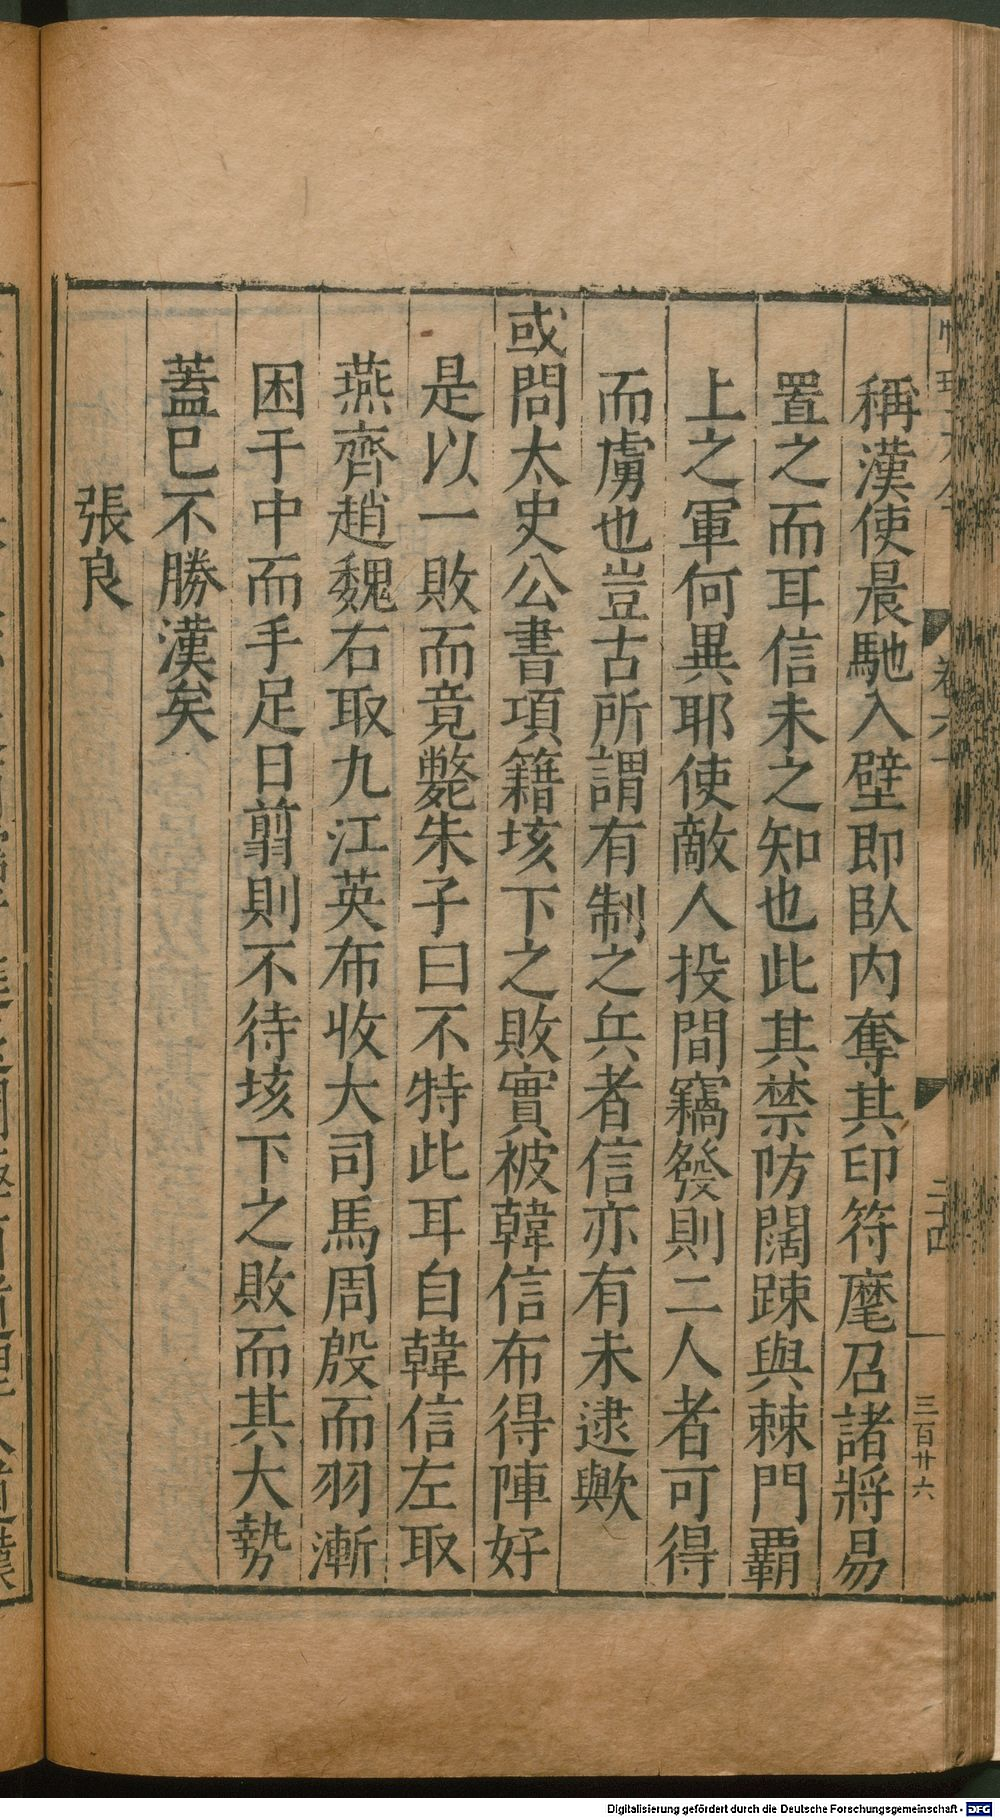 稱漢使晨馳入壁即臥內奪其印符麾召諸將易
置之而耳信未之知也此其禁防闊踈與棘門霸
上之軍何異耶使敵人投間竊發則二人者可得
而虜也豈古所謂有制之兵者信亦有未逮歟
或問太史公書項籍垓下之敗實被韓信布得陣好
是以一敗而竟斃朱子曰不特此耳自韓信左取
燕齊趙魏右取九江英布收大司馬周殷而羽漸
困于中而手足日翦則不待垓下之敗而其大勢
蓋已不勝漢矣
張良
卷六十
二十四
三百廿六
Digitalisierung gefördert durch die Deutsche Forschungsgemeinschaft - DFG